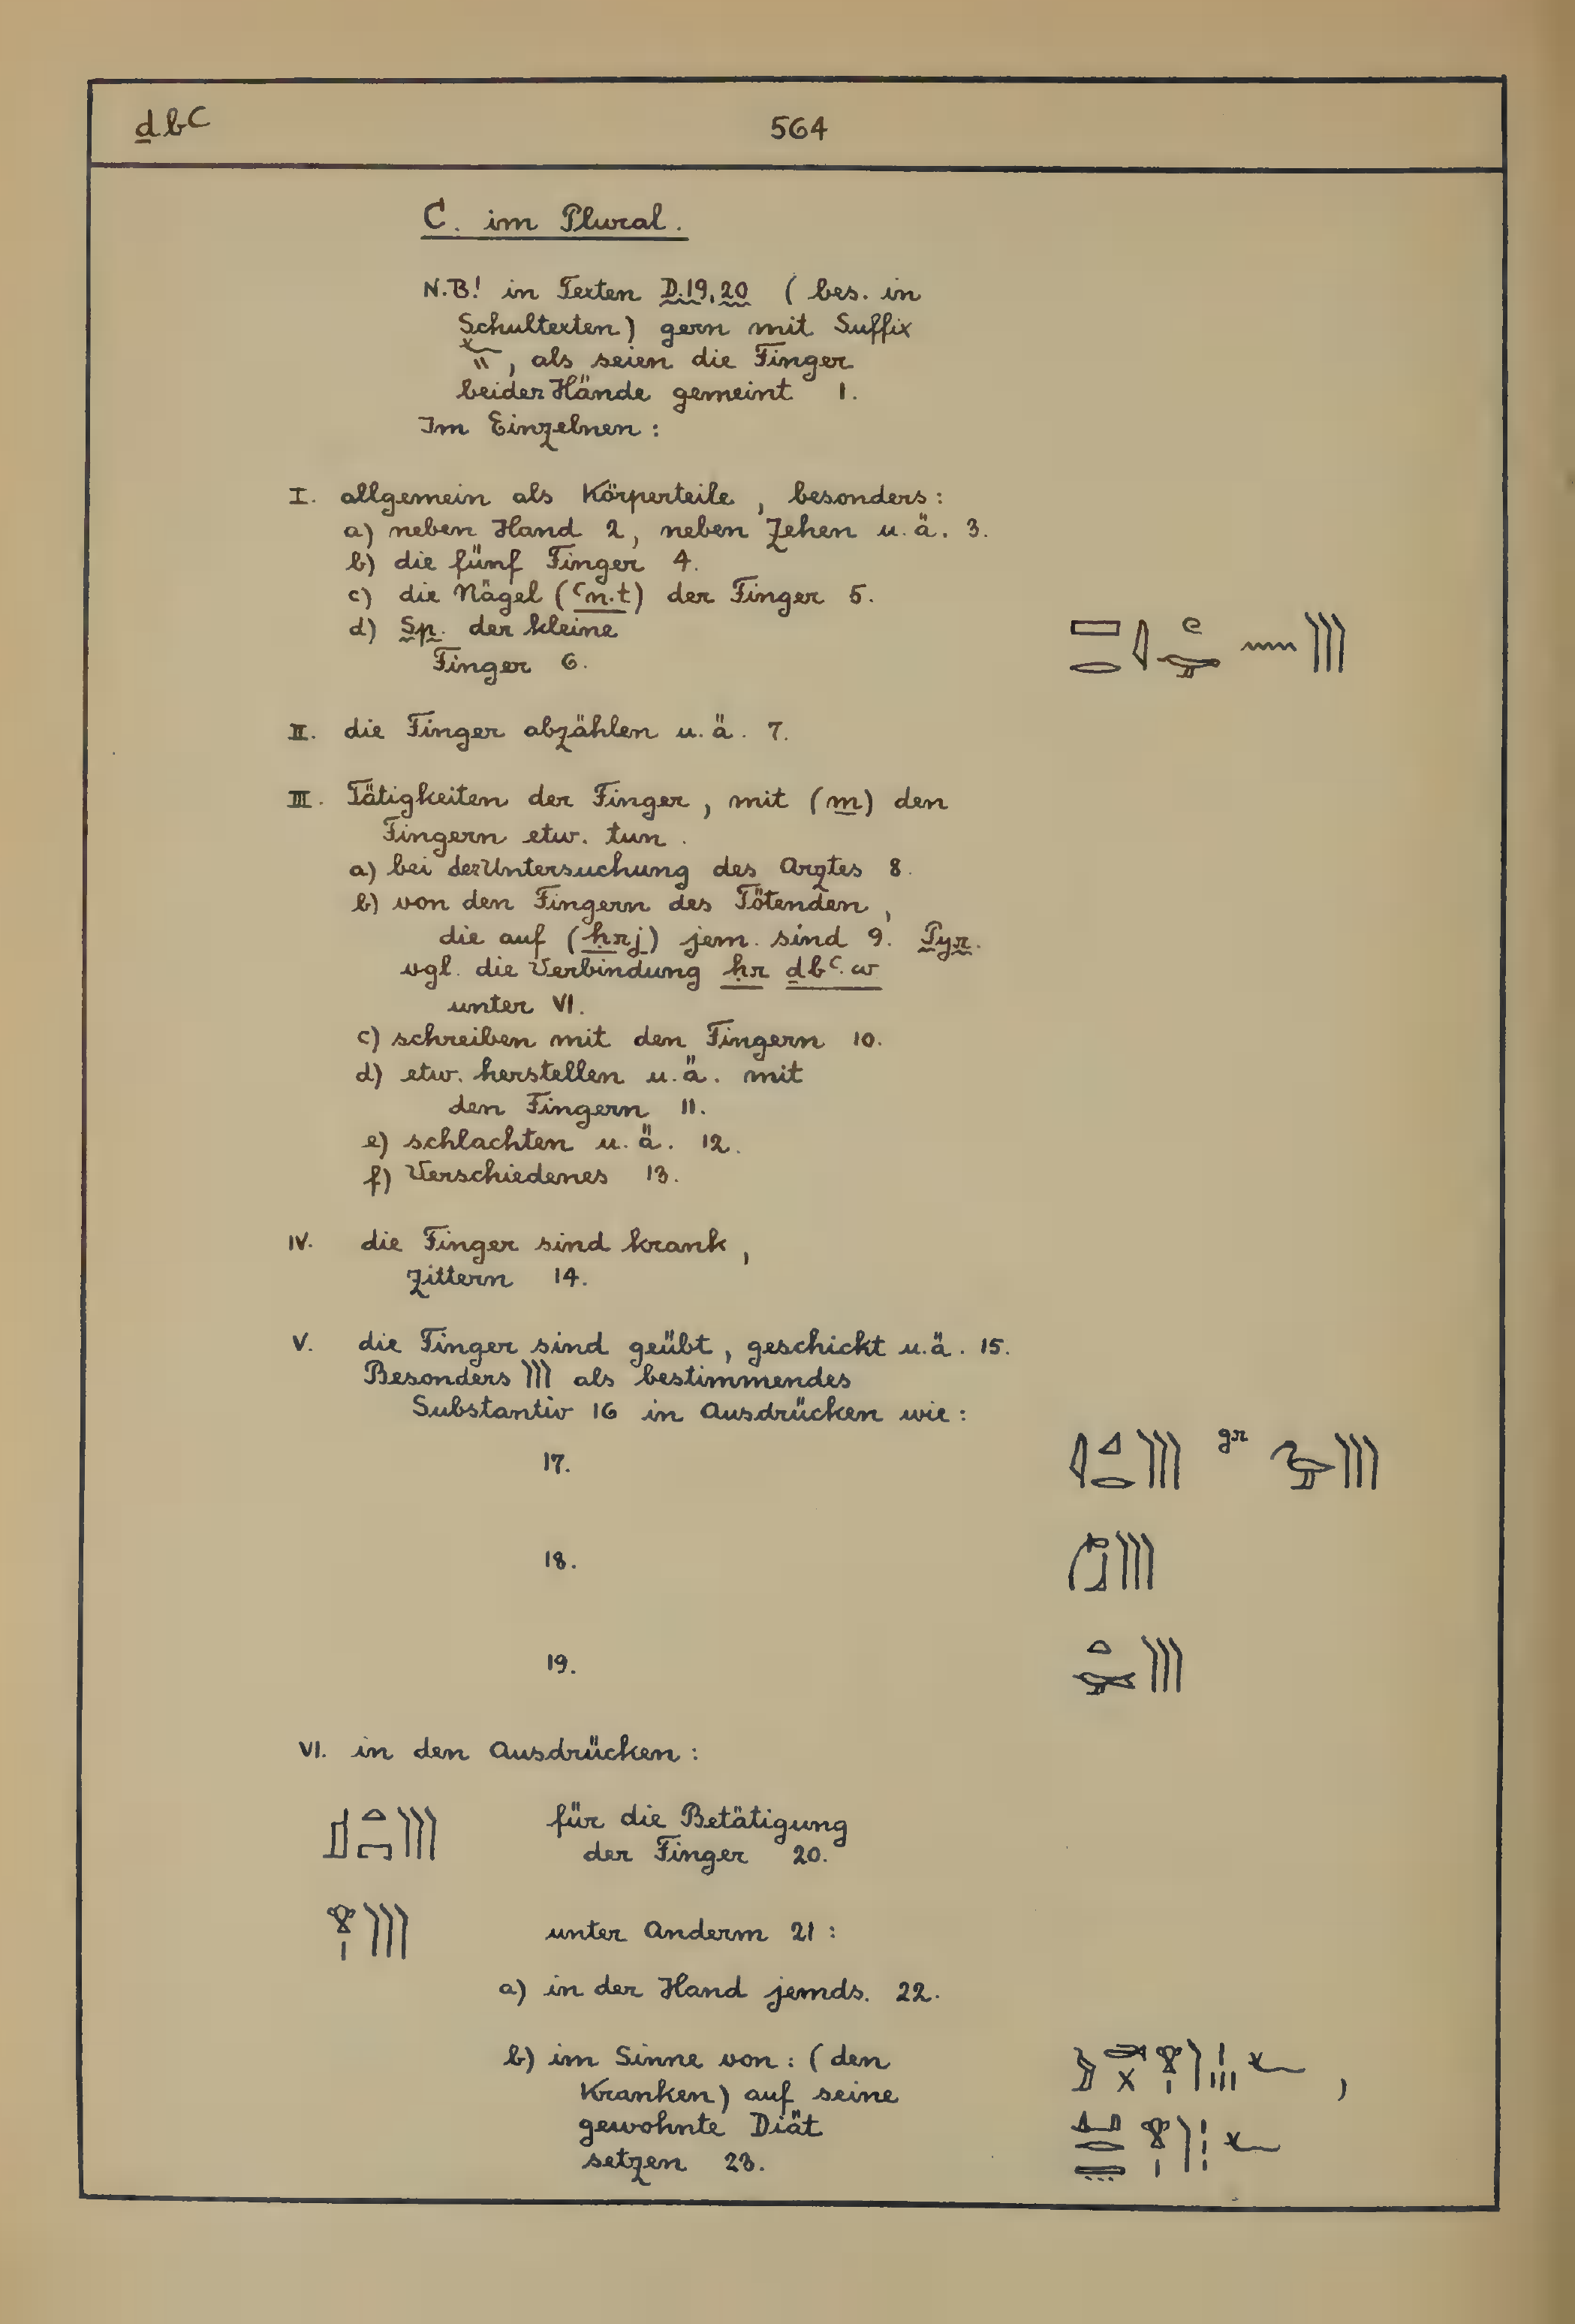 ḏbꜥ
564
C. im Plural.
N.B! in Texten D.19,20 (bes. in
Schultexten) gern mit Suffix
, als seien die Finger
beider Hände gemeint 1.
Im Einzelnen:
I. allgemein als Körperteile, besonders:
a) neben Hand 2, neben Zehen u.ä. 3.
b) die fünf Finger 4.
c) die Nägel (ꜥn.t) der Finger 5.
d) Sp. der kleine
Finger 6.
II. die Finger abzählen u.ä. 7.
III. Tätigkeiten der Finger, mit (m) den
Fingern etw. tun.
a) bei der Untersuchung des Arztes 8.
b) von den Fingern des Tötenden,
die auf (ḥrj) jem. sind 9. Pyr.
vgl. die Verbindung ḥr ḏbꜥ.w
unter VI.
c) schreiben mit den Fingern 10.
d) etw. herstellen u.ä. mit
den Fingern 11.
e) schlachten u.ä. 12.
f) Verschiedenes 13.
IV. die Finger sind krank,
zittern 14.
V. die Finger sind geübt, geschickt u.ä. 15.
Besonders 𓂭𓂭𓂭 als bestimmendes
Substantiv 16 in Ausdrücken wie:
17. gr
18.
19.
VI. in den Ausdrücken:
für die Betätigung
der Finger 20.
𓁷𓏤𓂭𓂭𓂭 unter Anderm 21:
a) in der Hand jemds. 22.
b) im Sinne von: (den
Kranken) auf seine
gewohnte Diät
setzen 23.